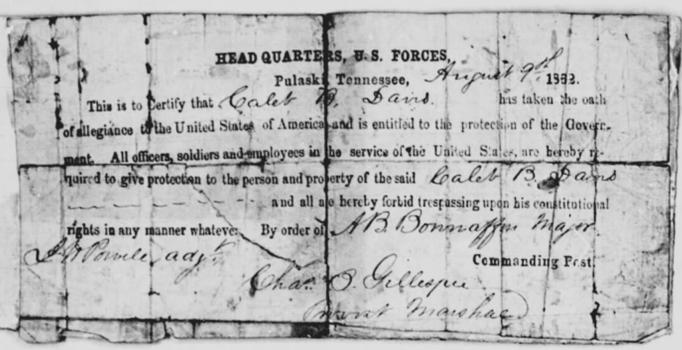 HEAD QUARTERS, U. S. FORCES,
Pulaski Tennessee, August 9th 1863.
This is to Certify that Caleb B. Davis. has taken the oath
of allegiance to the United States of America and is entitled to the protection of the Govern-
ment. All officers, soldiers and employees in the service of the United States, are hereby re-
quired to give protection to the person and property of the said Caleb B. Davis
and all are hereby forbid trespassing upon his constitutional
rights in any manner whatever. By order of A B. Bonnaffon Major
adjt. Commanding Post
Chas. S. Gillespie
Provost Marshal